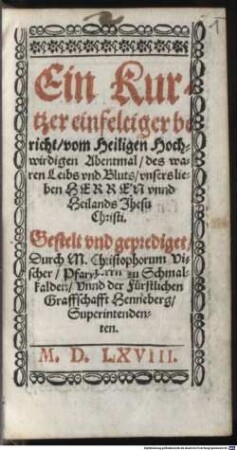 Ein Kur-
tzer einfeltiger be
richt/vom Heiligen Hoch-
wirdigen Abentmal/des wa-
ren Leibs vnd Bluts/vnsers lie-
ben HERREN vnnd
Heilands Jhesu
Christi.
Gestelt vnd geprediget/
Durch M. Christophorum Vi-
scher/ zu Schmal-
kalden/Vnnd der Fürstlichen
Graffschafft Henneberg/
Superintenden-
ten.
M. D. LXVIII.